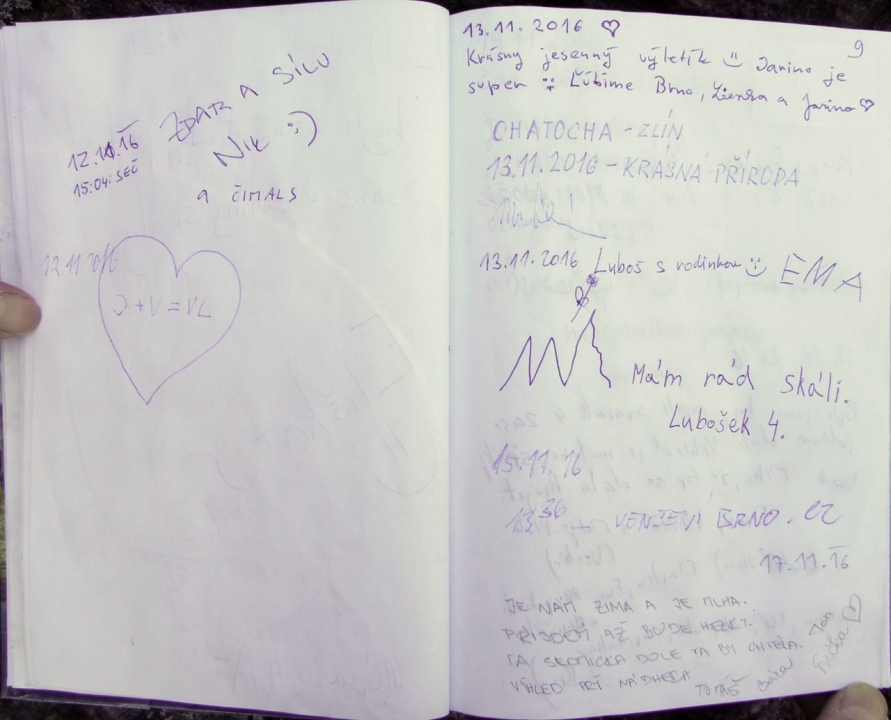 12.11.16
15:04 SEČ
ZDAR A SÍLU
NIK :)
a ČIMALS
12 11 2016
J + V = VL
9
13.11.2016 ♡
Krásny jesenný výletík Janino je
super Ľúbime Brno, Lienka a Janino ♡
CHATOCHA - ZLÍN
13.11.2016 - KRÁSNÁ PŘÍRODA
13.11.2016 Luboš s rodinkou EMA
Mám rád skáli.
Lubošek 4.
15.11.16
13:36 BRNO.CZ
17.11.16
JE NÁM ZIMA A JE MLHA.
PŘIJDEM AŽ BUDE HEZKY.
TA SEDNIČKA DOLE TA BY CHTĚLA.
VÝHLED PRÝ NÁDHERA
TOMÁŠ